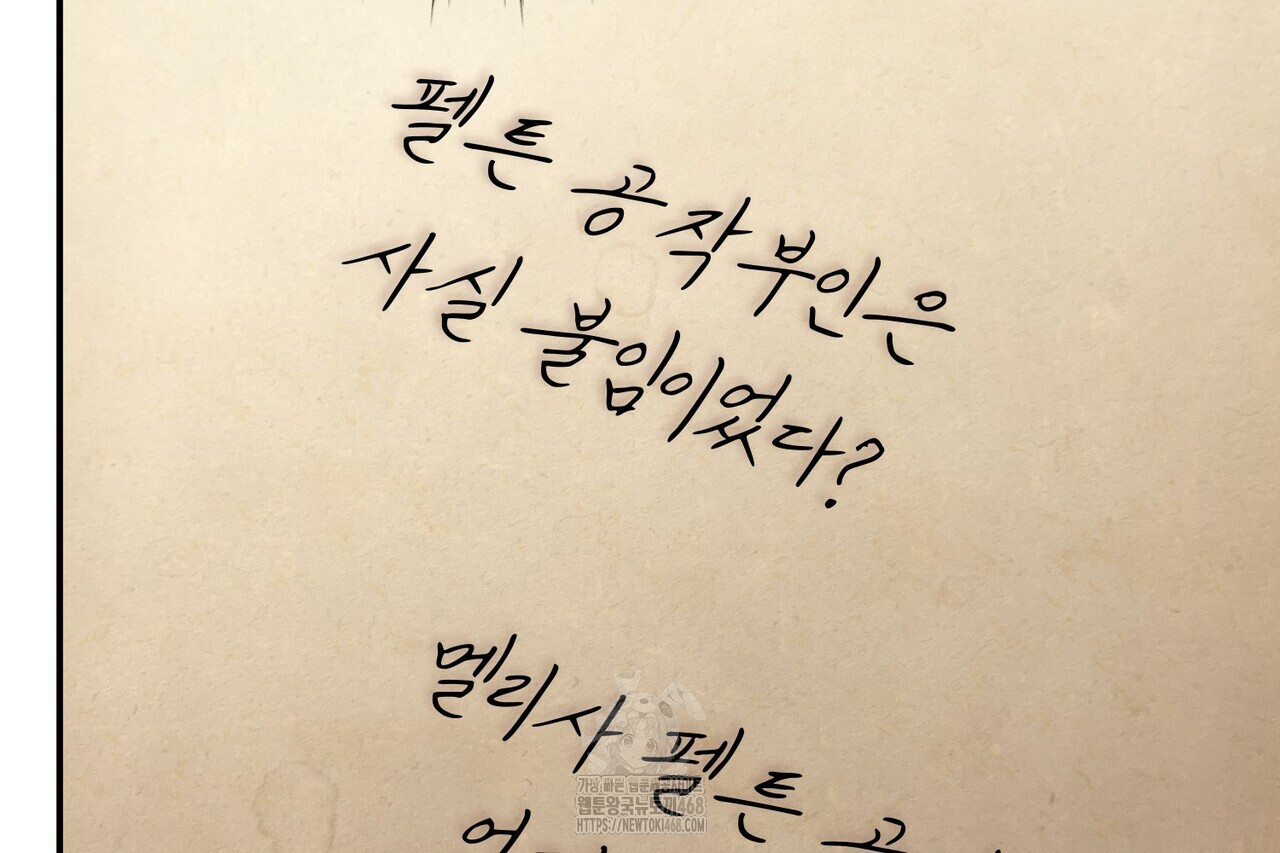 펠튼 공작부인은
사실 불임이었다?
멜리사 펠튼
가장 빠른 웹툰제공사이트
웹툰왕국뉴토끼468
HTTPS://NEWTOKI468.COM